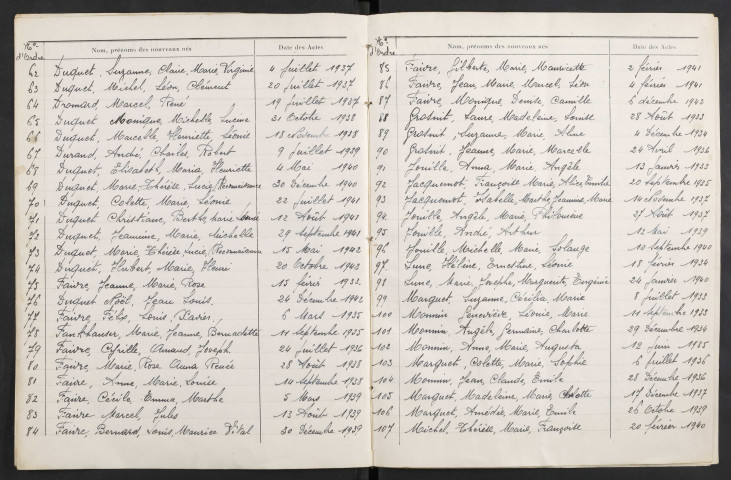 Nos d'Ordre Nom, prénoms des nouveaux nés Date des Actes
62 Duquet, Suzanne, Claire, Marie, Virginie 4 Juillet 1937
63 Duquet, Michel, Léon, Clément 20 Juillet 1937
64 Dromard, Marcel, René 19 Juillet 1937
65 Duquet Monique, Michelle, Lucine 31 Octobre 1938
66 Duquet, Marcelle, Henriette, Léonie 18 Novembre 1938
67 Durand, André, Charles, Robert 9 Juillet 1939
68 Duquet, Elisabeth, Maria, Henriette 4 Mai 1940
69 Duquet, Marie-Thérèse, Lucie, 20 Décembre 1940
70 Duquet, Colette, Marie, Léonie 22 Juillet 1941
71 Duquet Christiane, Berthe, Marie 12 Août 1941
72 Duquet, Jeannine, Marie, Michelle 29 Septembre 1941
73 Duquet, Marie, Thérèse Lucie, 15 Mai 1942
74 Duquet, Hubert, Marie, Henri 20 Octobre 1943
75 Faivre, Jeanne, Marie, Rose 15 février 1933
76 Duquet Noël, Jean Louis 24 Décembre 1942
77 Faivre, Félix, Louis, Xavier 6 Mars 1935
78 Fankhauser, Marie, Jeanne, Bernadette 11 Septembre 1935
79 Faivre, Cyrille, Amand, Joseph 24 Juillet 1936
80 Faivre, Marie, Rose Anna Renée 28 Août 1938
81 Faivre, Anne, Marie, Louise 14 Septembre 1938
82 Faivre, Cécile Emma, Marthe 5 Mars 1939
83 Faivre Marcel, Jules 13 Août 1939
84 Faivre, Bernard, Louis, Maurice Vital 30 Décembre 1939
Nos d'Ordre Nom, prénoms des nouveaux nés Date des Actes
85 Faivre, Gilberte, Marie, Mauricette 2 février 1941
86 Faivre, Jean, Marie, Marcel, Léon 4 février 1941
87 Faivre, Monique, Denise, Camille 6 décembre 1942
88 Laure, Madeleine, 28 Août 1933
89 Suzanne, Marie, Aline 4 Décembre 1934
90 Jeanne, Marie, Marcelle 24 Avril 1936
91 Jouille, Anna, Marie, Angèle 13 Janvier 1933
92 Jacquemot, Françoise Marie, Alice, Emilie 20 Septembre 1935
93 Jacquemot, Isabelle, Marthe, Jeanne, Marie 14 Octobre 1937
94 Jouille, Angèle, Marie, Philomène 27 Août 1937
95 Jouille, André, Arthur 12 Mai 1939
96 Jouille, Michelle, Marie, Solange 10 Septembre 1940
97 Hélène, Ernestine, Léonie 18 février 1934
98 Marie, Josèphe, Marguerite, Eugénie 24 Janvier 1940
99 Marguet, Suzanne, Cécilia, Marie 8 Juillet 1933
100 Monnin, Geneviève, Léonie, Marie 11 Septembre 1933
101 Monnin, Angèle, Germaine, Charlotte 29 Décembre 1934
102 Monnin, Anna, Marie, Augusta 12 Juin 1935
103 Marguet, Colette, Marie, Sophie 6 Juillet 1936
104 Monnin, Jean, Claude, Emile 28 Décembre 1936
105 Marguet, Madeleine, Marie, Colette 17 Décembre 1937
106 Marguet, Amédée, Marie, Emile 26 Octobre 1939
107 Michel, Thérèse, Marie, Françoise 20 février 1940